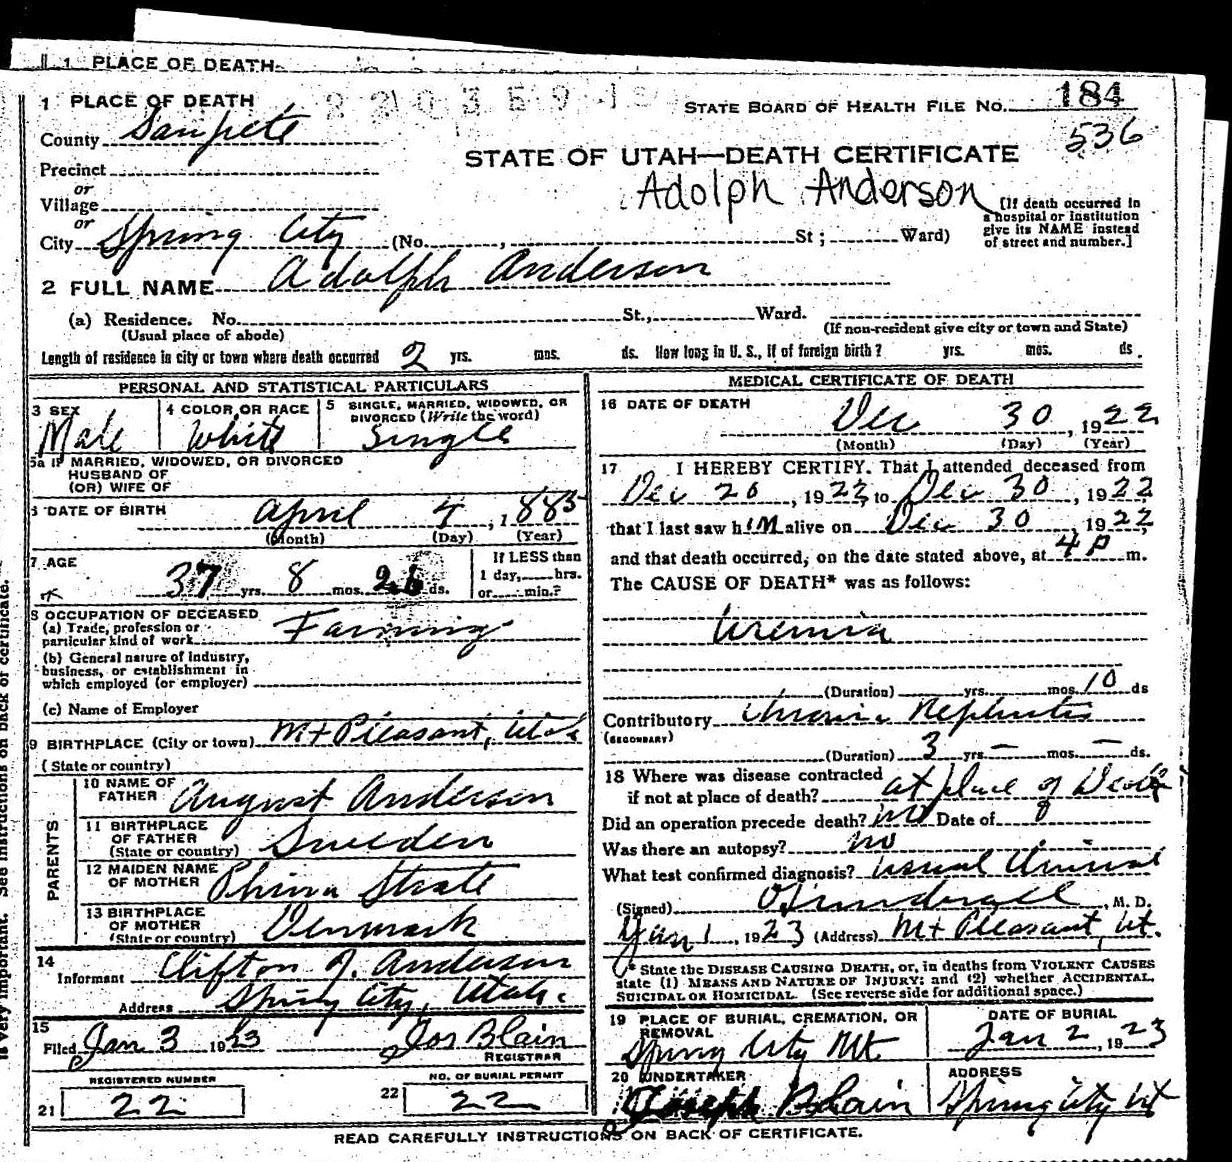 1 PLACE OF DEATH
1 PLACE OF DEATH
STATE BOARD OF HEALTH FILE NO. 184
536
County Sanpete
STATE OF UTAH—DEATH CERTIFICATE
Precinct
or
Village
Adolph Anderson
[If death occurred in a hospital or institution give its NAME instead of street and number.]
or
City Spring City (No. , St; Ward)
2 FULL NAME Adolph Anderson
(a) Residence. No. St., Ward.
(Usual place of abode) (If non-resident give city or town and State)
Length of residence in city or town where death occurred 2 yrs. mos. ds. How long in U. S., if of foreign birth? yrs. mos. ds.
PERSONAL AND STATISTICAL PARTICULARS
3 SEX Male
4 COLOR OR RACE White
5 SINGLE, MARRIED, WIDOWED, OR DIVORCED (Write the word) Single
5a IF MARRIED, WIDOWED, OR DIVORCED
HUSBAND OF
(OR) WIFE OF
6 DATE OF BIRTH April 4, 1885
(Month) (Day) (Year)
7 AGE 37 yrs. 8 mos. 26 ds.
If LESS than
1 day, hrs.
or min.?
8 OCCUPATION OF DECEASED
(a) Trade, profession or
particular kind of work Farming
(b) General nature of industry,
business, or establishment in
which employed (or employer)
(c) Name of Employer
9 BIRTHPLACE (City or town) Mt Pleasant, Utah
(State or country)
PARENTS
10 NAME OF FATHER August Anderson
11 BIRTHPLACE OF FATHER (State or country) Sweden
12 MAIDEN NAME OF MOTHER Strate
13 BIRTHPLACE OF MOTHER (State or country) Denmark
14 Informant Clifton J. Anderson
Address Spring City, Utah.
15 Filed Jan 3 1923 Jos Blain
REGISTRAR
REGISTERED NUMBER
21 22
NO. OF BURIAL PERMIT
22 22
MEDICAL CERTIFICATE OF DEATH
16 DATE OF DEATH Dec 30, 1922
(Month) (Day) (Year)
17 I HEREBY CERTIFY. That I attended deceased from
Dec 26, 1922, to Dec 30, 1922,
that I last saw him alive on Dec 30, 1922,
and that death occurred, on the date stated above, at 4 P m.
The CAUSE OF DEATH* was as follows:
Uremia
(Duration) yrs. mos. 10 ds
Contributory Chronic Nephritis
(SECONDARY)
(Duration) 3 yrs. — mos. — ds.
18 Where was disease contracted
if not at place of death? at place of Death
Did an operation precede death? no Date of 0
Was there an autopsy? no
What test confirmed diagnosis? usual
(Signed) , M. D.
Jan 1, 1923 (Address) Mt Pleasant, Ut.
* State the DISEASE CAUSING DEATH, or, in deaths from VIOLENT CAUSES
state (1) MEANS AND NATURE OF INJURY; and (2) whether ACCIDENTAL,
SUICIDAL OR HOMICIDAL. (See reverse side for additional space.)
19 PLACE OF BURIAL, CREMATION, OR REMOVAL Spring City Ut
DATE OF BURIAL Jan 2, 1923
20 UNDERTAKER Joseph Blain
ADDRESS Spring City Ut
READ CAREFULLY INSTRUCTIONS ON BACK OF CERTIFICATE.
is very important. See instructions on back of certificate.